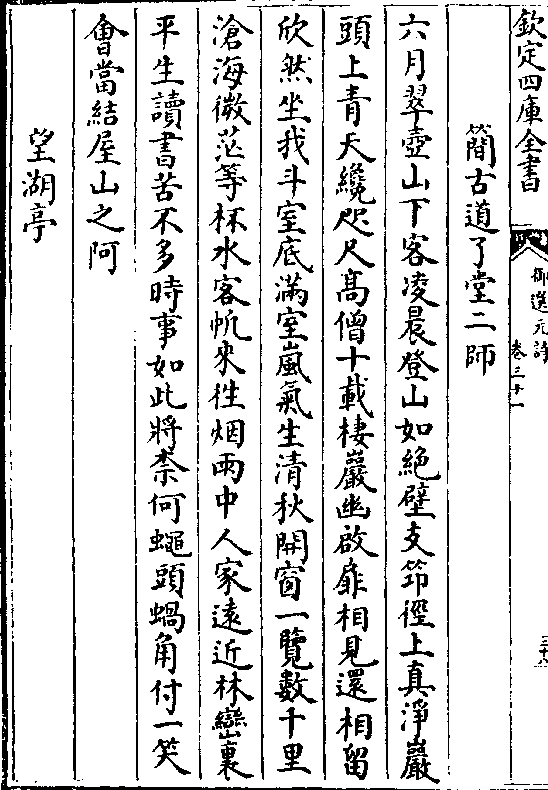 欽定四庫全書
御選元詩
卷三十一
三十八
簡古道了堂二師
六月翠壺山下客凌晨登山如絶壁支笻徑上真淨巖
頭上青天纔咫尺高僧十載棲巖幽啟扉相見還相留
欣然坐我斗室底滿室嵐氣生清秋開窗一覽數千里
滄海微茫等杯水客帆來往烟雨中人家遠近林巒裏
平生讀書苦不多時事如此將柰何蠅頭蝸角付一笑
會當結屋山之阿
望湖亭